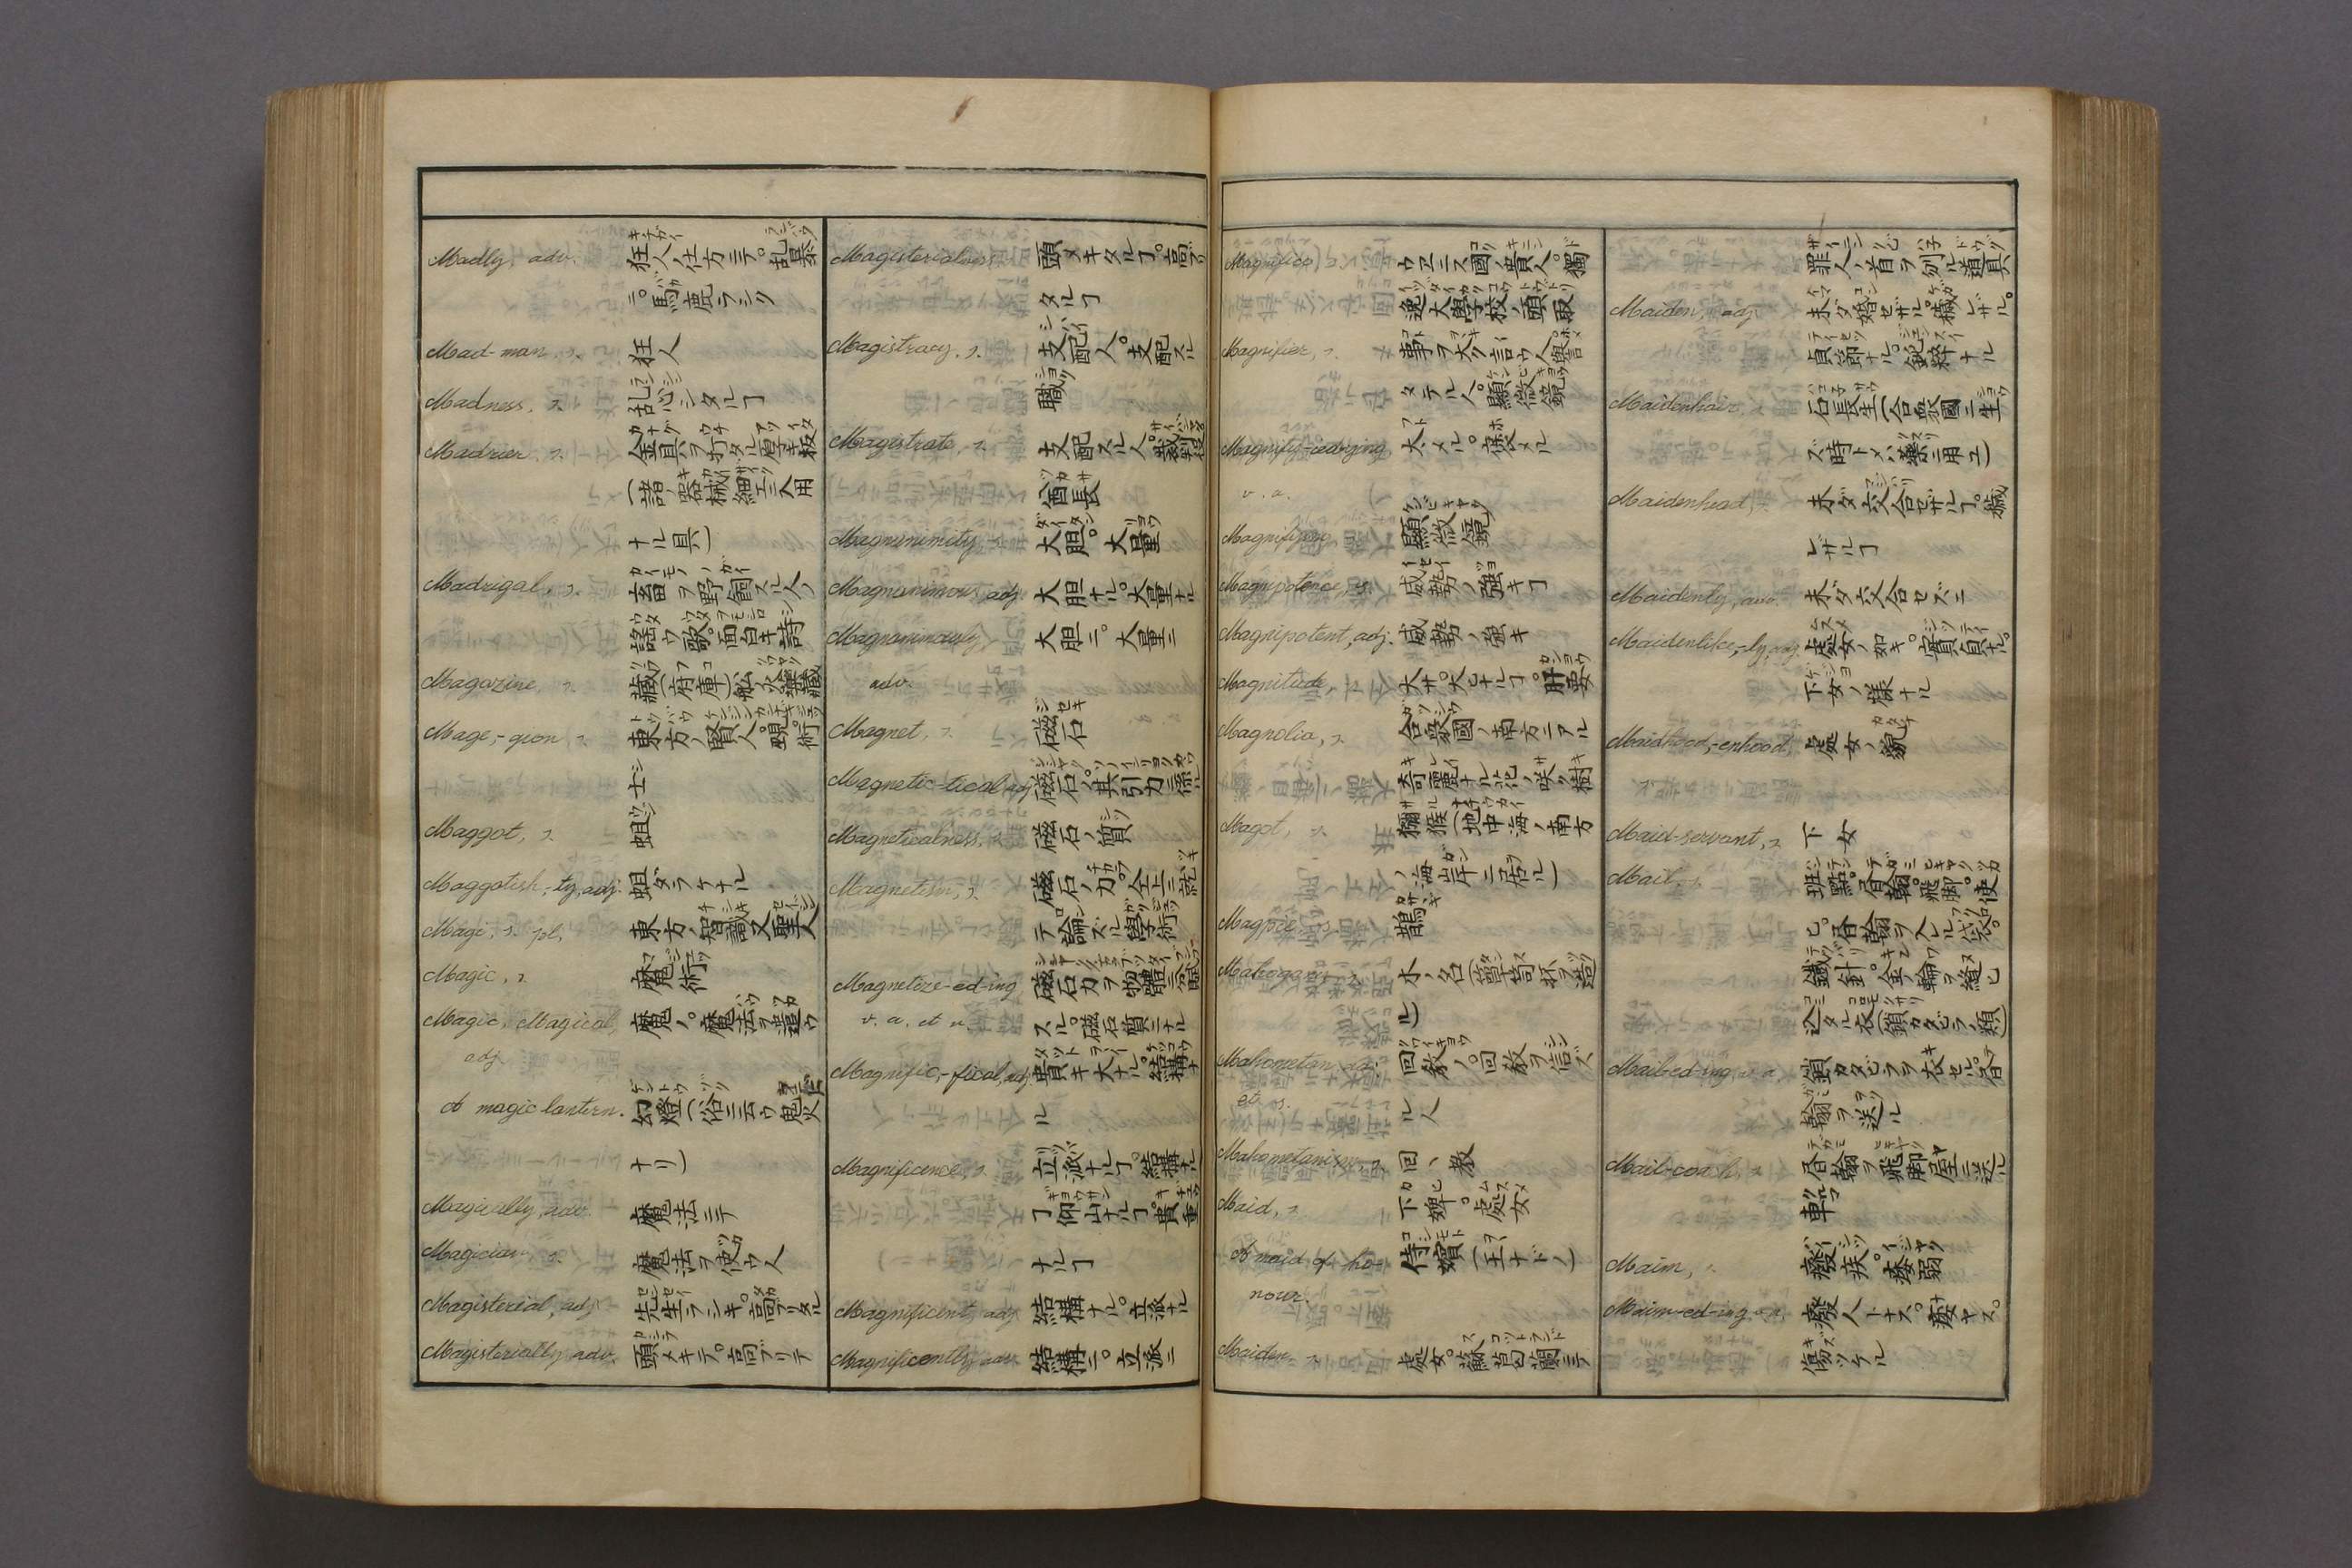 Madly, adv. 狂人ノ仕方ニテ。乱暴
ニ。馬鹿ラシク
Mad-man, s. 狂人
Madness, s. 乱心シタルヿ
Madrier, s. 金具ヲ打タル厚キ板
(諸ノ器械細工ニ入用
ナル具)
Madrigal, s. 畜ヲ野飼スル人ノ
謡ウ歌。面白キ詩
Magazine, s. 藏(府庫)舩ノ火藥藏
Mage,-gion s. 東方ノ賢人。覡。術
士
Maggot, s. 蛆
Maggotish,-ty, adj. 蛆ダラケナル
Magi, s. pl. 東方ノ智識又聖人
Magic, s. 魔術
Magic, Magical, 魔ノ。魔法ヲ遣ウ
adj.
A magic lantern. 幻燈(俗ニ云ウ鬼火
ナリ)
Magically, adv. 魔法ニテ
Magician, s. 魔法ヲ使ウ人
Magisterial, adj. 先生ラシキ。高ブリタル
Magisterially, adv. 頭メキテ。高ブリテ
Magisterialness 頭メキタルヿ。高ブリ
タルヿ
Magistracy, s. 支配人。支配スル
職
Magistrate, s. 支配スル人。裁判役
酋長
Magnanimity, s. 大胆。大量
Magnanimous, adj. 大胆ナル。大量ナル
Magnanimously, 大胆ニ。大量ニ
adv.
Magnet, s. 磁石
Magnetic-tical, adj. 磁石ノ。其引力ニ係ル
Magneticalness, s. 磁石ノ質
Magnetism, s. 磁石ノ力。全上ニ就キ
テ論ズル學術
Magnetize-ed-ing 磁石力ヲ物體ニ
v. a. et n. スル。磁石質ニナル
Magnific,-fical, adj. 貴キ大ナル。結構ナ
ル
Magnificence, s. 立派ナルヿ。結構ナル
ヿ仰山ナルヿ。貴重
ナルヿ
Magnificent, adj. 結構ナル。立派ナル
Magnificently, adv. 結構ニ。立派ニ
Magnifico, s. ウエニス國ノ貴人。獨
逸大學校ノ頭取
Magnifier, s. 事ヲ大ク言ウ人。
タテル人。顯微鏡
Magnify-ied-ying, 太メル。褒メル
v. a.
顯微鏡
Magnipotence, s. 威勢ノ強キヿ
Magnipotent, adj. 威勢ノ強キ
Magnitude, s. 大サ。大ヒナルヿ。肝要
Magnolia, s. 合衆國ノ南方ニアル
奇麗ナル花ノ咲ク樹
Magot, s. 獼猴(地中海ノ南方
ノ海岸ニ居ル)
Magpie, s. 鵲
Mahogany, s. 木ノ名(簞笥抔ヲ造
ル)
Mahometan, adj. 回教ノ。回教ヲ信ズ
et s. ル人
Mahometanism, s. 回々教
Maid, s. 下婢。處女
A maid of ho- 侍嬪(王ナドノ)
nour.
Maiden, s. 處女。蘇葛蘭ニテ
罪人ノ首ヲ刎ル道具
Maiden, adj. 未ダ婚セザル。穢レザル。
貞節ナル。純粹ナル
Maidenhair, 石長生(合衆國ニ生
ズ時トメハ藥ニ用ユ)
Maidenhead, s. 未ダ交合セザルヿ。穢
レザルヿ
Maidenly, adv. 未ダ交合セズニ
Maidenlike,-ly, adj. 處女ノ如キ。實貞ナル。
下女ノ様ナル
Maidhood,-enhood, 處女ノ貌
s.
Maid-servant, s. 下女
Mail, s. 班點。書翰。飛脚。使
ヒ。書翰ヲ入レル袋。
鐵針。金ノ輪ヲ縫ヒ
込タル衣(鎖カタビラノ類)
Mail-ed-ing, v. a. 鎖カタビラヲ衣セル。書
翰ヲ送ル
Mail-coach, s. 書翰ヲ飛脚屋ニ送ル
車
Maim, s. 癈疾。痿弱
Maim-ed-ing, v. a. 癈人トナス。痿ヤス。
傷ツケル